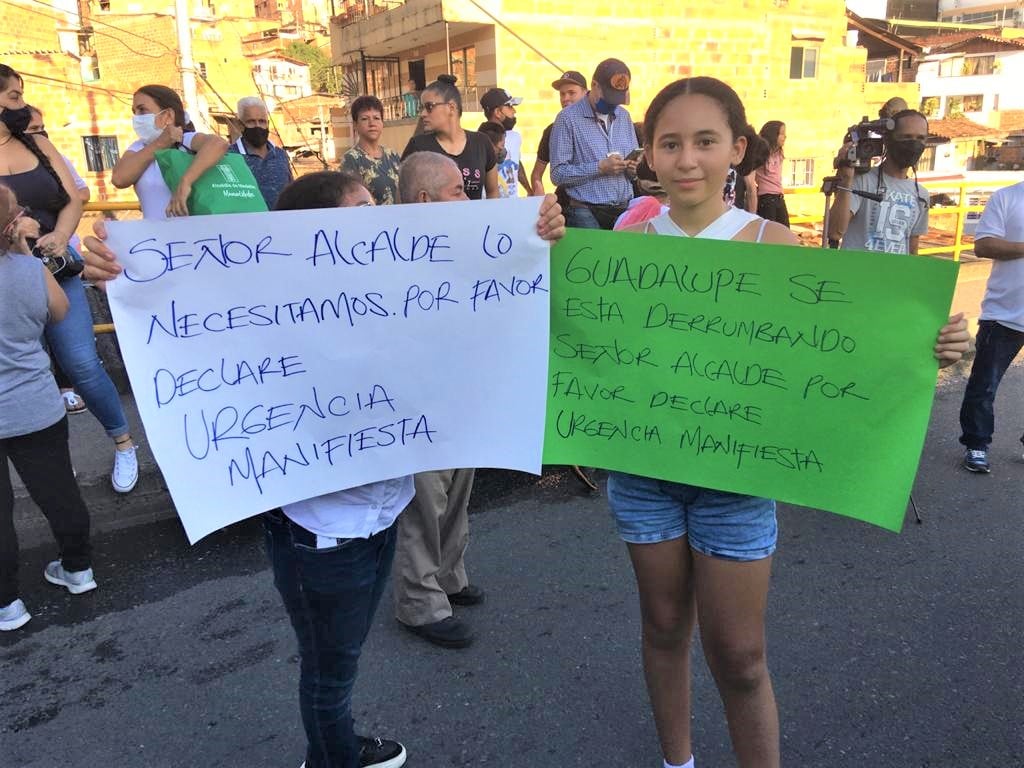 SEÑOR ALCALDE LO
NECESITAMOS. POR FAVOR
DECLARE
URGENCIA
MANIFIESTA
GUADALUPE SE
ESTA DERRUMBANDO
SEÑOR ALCALDE POR
FAVOR DECLARE
URGENCIA MANIFIESTA
Alcaldía de Medellín
KATE
IS
4EVER